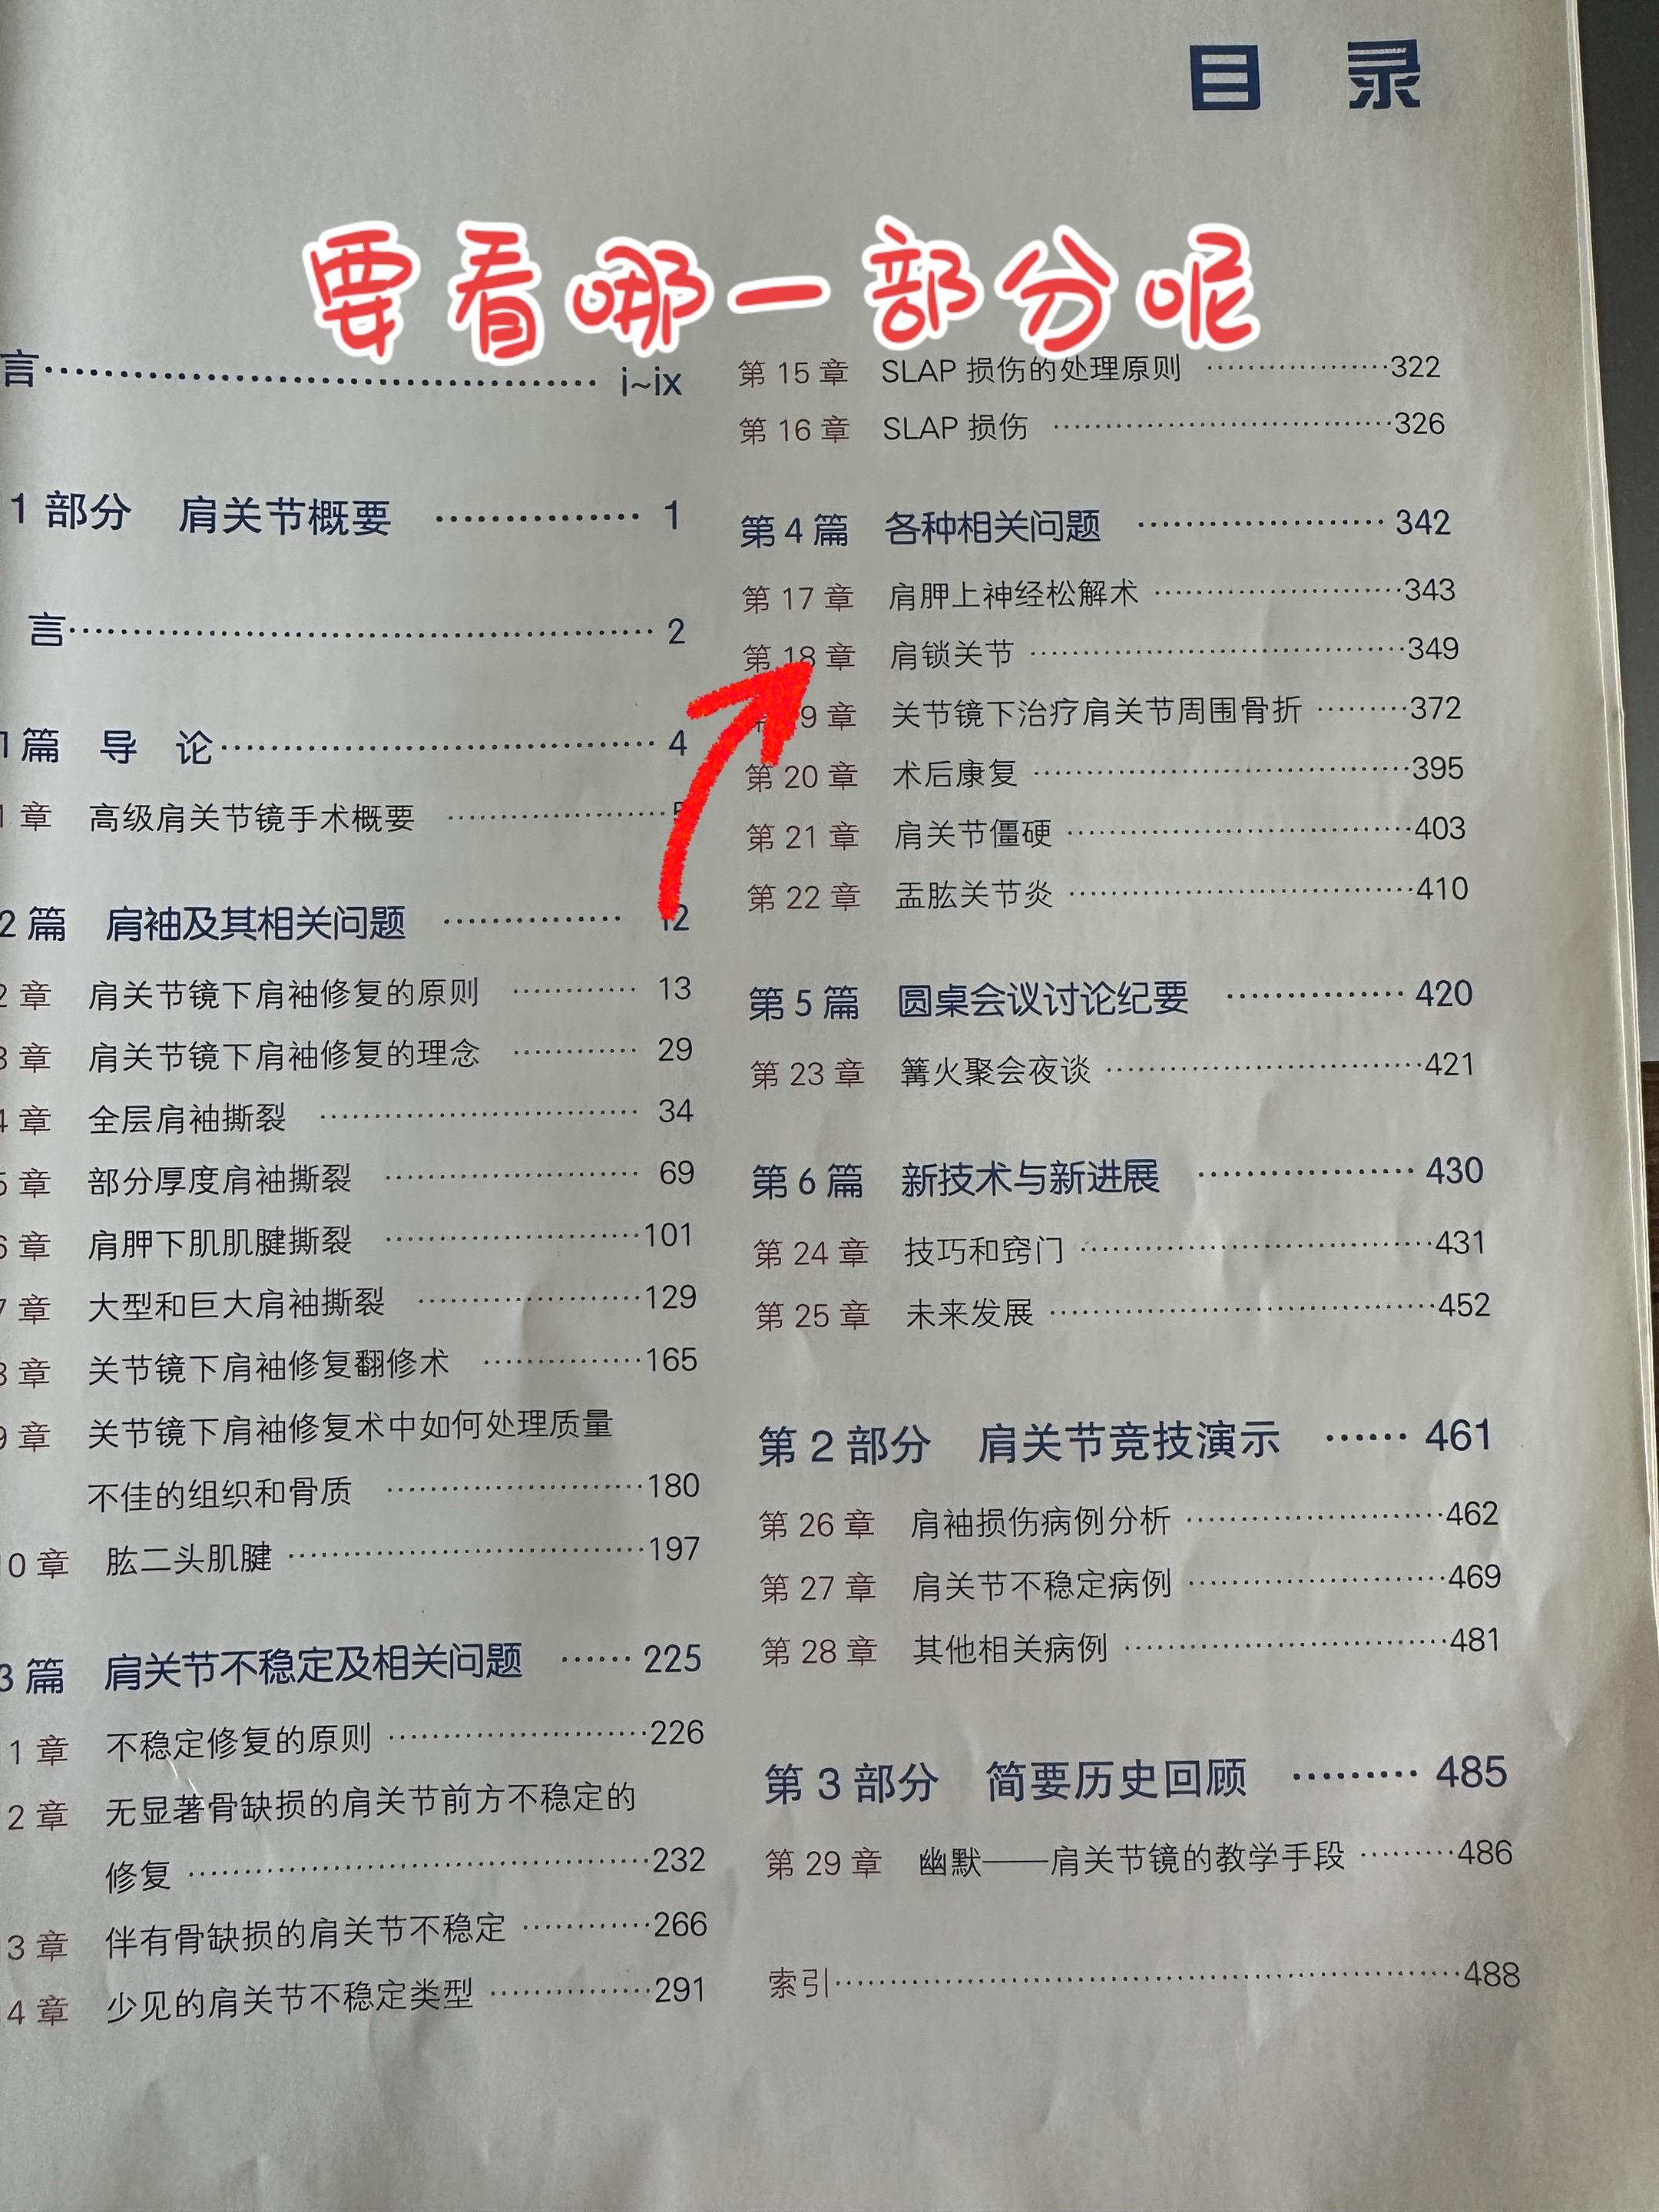 目 录
要看哪一部分呢
言 i~ix
1 部分 肩关节概要 1
言 2
1 篇 导 论 4
1 章 高级肩关节镜手术概要 5
2 篇 肩袖及其相关问题 12
2 章 肩关节镜下肩袖修复的原则 13
3 章 肩关节镜下肩袖修复的理念 29
4 章 全层肩袖撕裂 34
5 章 部分厚度肩袖撕裂 69
6 章 肩胛下肌肌腱撕裂 101
7 章 大型和巨大肩袖撕裂 129
8 章 关节镜下肩袖修复翻修术 165
9 章 关节镜下肩袖修复术中如何处理质量
不佳的组织和骨质 180
0 章 肱二头肌腱 197
3 篇 肩关节不稳定及相关问题 225
1 章 不稳定修复的原则 226
2 章 无显著骨缺损的肩关节前方不稳定的
修复 232
3 章 伴有骨缺损的肩关节不稳定 266
4 章 少见的肩关节不稳定类型 291
第 15 章 SLAP 损伤的处理原则 322
第 16 章 SLAP 损伤 326
第 4 篇 各种相关问题 342
第 17 章 肩胛上神经松解术 343
第 18 章 肩锁关节 349
9 章 关节镜下治疗肩关节周围骨折 372
第 20 章 术后康复 395
第 21 章 肩关节僵硬 403
第 22 章 盂肱关节炎 410
第 5 篇 圆桌会议讨论纪要 420
第 23 章 篝火聚会夜谈 421
第 6 篇 新技术与新进展 430
第 24 章 技巧和窍门 431
第 25 章 未来发展 452
第 2 部分 肩关节竞技演示 461
第 26 章 肩袖损伤病例分析 462
第 27 章 肩关节不稳定病例 469
第 28 章 其他相关病例 481
第 3 部分 简要历史回顾 485
第 29 章 幽默——肩关节镜的教学手段 486
索引 488